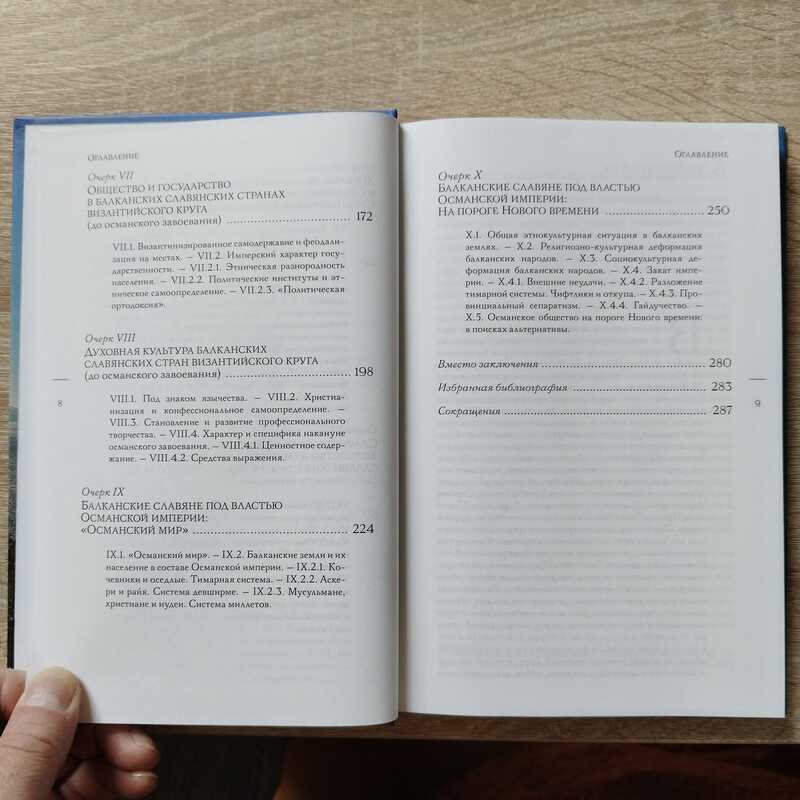 Оглавление
Очерк VII
Общество и государство
в балканских славянских странах
византийского круга
(до османского завоевания) 172
VII.1. Византинизированное самодержавие и феодали-
зация на местах. – VII.2. Имперский характер госу-
дарственности. – VII.2.1. Этническая разнородность
населения. – VII.2.2. Политические институты и эт-
ническое самоопределение. – VII.2.3. «Политическая
ортодоксия».
Очерк VIII
Духовная культура балканских
славянских стран византийского круга
(до османского завоевания) 198
VIII.1. Под знаком язычества. – VIII.2. Христиа-
низация и конфессиональное самоопределение. –
VIII.3. Становление и развитие профессионального
творчества. – VIII.4. Характер и специфика накануне
османского завоевания. – VIII.4.1. Ценностное содер-
жание. – VIII.4.2. Средства выражения.
Очерк IX
Балканские славяне под властью
Османской империи:
«Османский мир» 224
IX.1. «Османский мир». – IX.2. Балканские земли и их
население в составе Османской империи. – IX.2.1. Ко-
чевники и оседлые. Тимарная система. – IX.2.2. Аске-
ри и райя. Система девширме. – IX.2.3. Мусульмане,
христиане и иудеи. Система миллетов.
8
Оглавление
Очерк X
Балканские славяне под властью
Османской империи:
На пороге Нового времени 250
X.1. Общая этнокультурная ситуация в балканских
землях. – X.2. Религиозно-культурная деформация
балканских народов. – X.3. Социокультурная де-
формация балканских народов. – X.4. Закат импе-
рии. – X.4.1. Внешние неудачи. – X.4.2. Разложение
тимарной системы. Чифтлики и откупа. – X.4.3. Про-
винциальный сепаратизм. – X.4.4. Гайдучество. –
X.5. Османское общество на пороге Нового времени:
в поисках альтернативы.
Вместо заключения 280
Избранная библиография 283
Сокращения 287
9